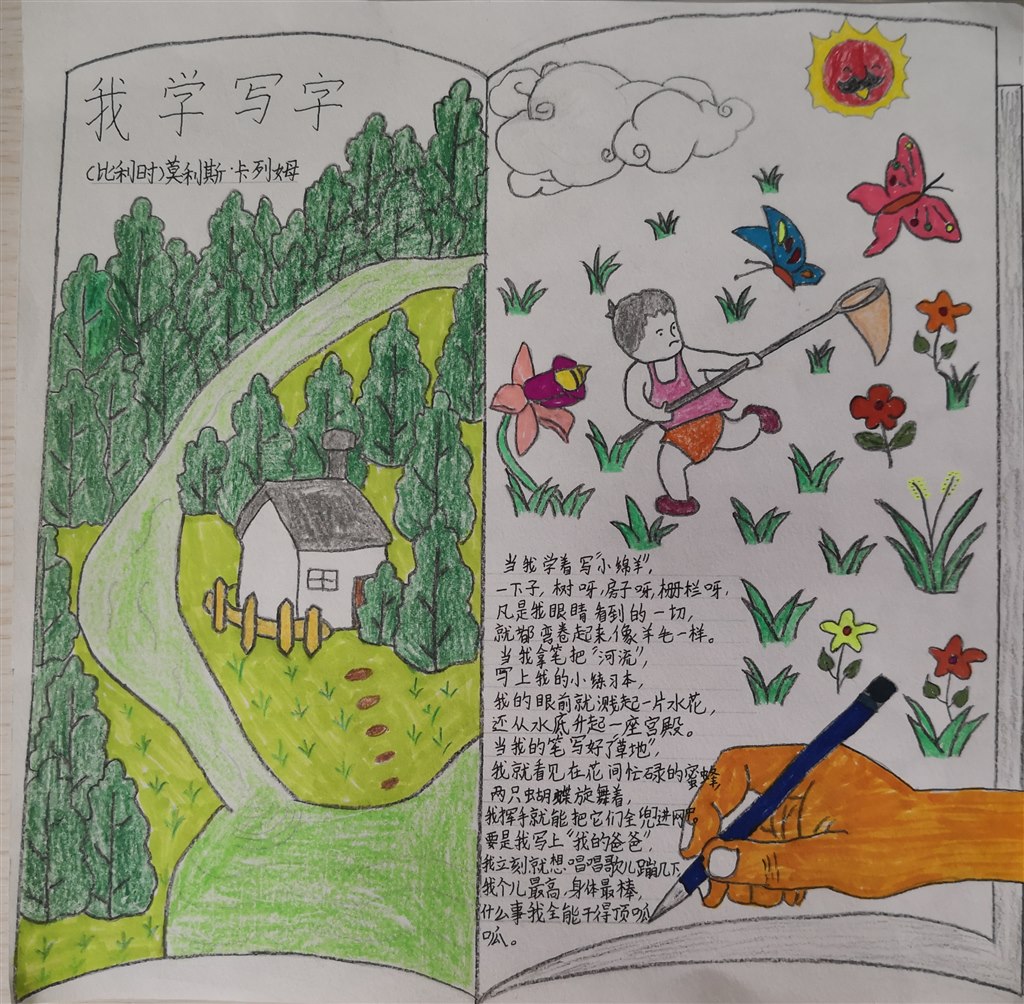 我学写字
(比利时)莫利斯·卡列姆
当我学着写“小绵羊”,
一下子,树呀,房子呀,栅栏呀,
凡是我眼睛看到的一切,
就都弯卷起来,像羊毛一样。
当我拿笔把“河流”,
写上我的小练习本,
我的眼前就溅起一片水花,
还从水底升起一座宫殿。
当我的笔写好了“草地”,
我就看见在花间忙碌的蜜蜂,
两只蝴蝶旋舞着,
我挥手就能把它们全兜进网兜。
要是我写上“我的爸爸”,
我立刻就想唱唱歌儿蹦几下,
我个儿最高,身体最棒,
什么事我全能干得顶呱
呱。